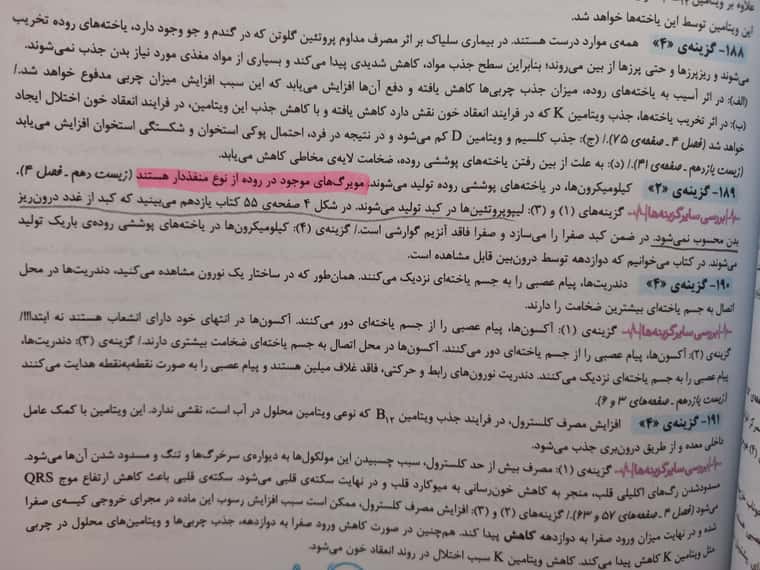 علاوه بر ویتامین
این ویتامین توسط این یاخته‌ها خواهد شد.
۱۸۸- گزینه‌ی «۴» همه‌ی موارد درست هستند. در بیماری سلیاک بر اثر مصرف مداوم پروتئین گلوتن که در گندم و جو وجود دارد، یاخته‌های روده تخریب
می‌شوند و ریزپرزها و حتی پرزها از بین می‌روند؛ بنابراین سطح جذب مواد، کاهش شدیدی پیدا می‌کند و بسیاری از مواد مغذی مورد نیاز بدن جذب نمی‌شوند.
(الف): در اثر آسیب به یاخته‌های روده، میزان جذب چربی‌ها کاهش یافته و دفع آن‌ها افزایش می‌یابد که این سبب افزایش میزان چربی مدفوع خواهد شد./
(ب): در اثر تخریب یاخته‌ها، جذب ویتامین K که در فرایند انعقاد خون نقش دارد کاهش یافته و با کاهش جذب این ویتامین، در فرایند انعقاد خون اختلال ایجاد
خواهد شد (فصل ۴ ـ صفحه‌ی ۷۵)./ (ج): جذب کلسیم و ویتامین D کم می‌شود و در نتیجه در فرد، احتمال پوکی استخوان و شکستگی استخوان افزایش می‌یابد
(زیست یازدهم ـ صفحه‌ی ۴۱)./ (د): به علت از بین رفتن یاخته‌های پوششی روده، ضخامت لایه‌ی مخاطی کاهش می‌یابد.
۱۸۹- گزینه‌ی «۲» کیلومیکرون‌ها، در یاخته‌های پوششی روده تولید می‌شوند. مویرگ‌های موجود در روده از نوع منفذدار هستند (زیست دهم ـ فصل ۴).
بررسی سایر گزینه‌ها گزینه‌های (۱) و (۳): لیپوپروتئین‌ها در کبد تولید می‌شوند. در شکل ۴ صفحه‌ی ۵۵ کتاب یازدهم می‌بینید که کبد از غدد درون‌ریز
بدن محسوب نمی‌شود. در ضمن کبد صفرا را می‌سازد و صفرا فاقد آنزیم گوارشی است./ گزینه‌ی (۴): کیلومیکرون‌ها در یاخته‌های پوششی روده‌ی باریک تولید
می‌شوند. در کتاب می‌خوانیم که دوازدهه توسط درون‌بین قابل مشاهده است.
۱۹۰- گزینه‌ی «۴» دندریت‌ها، پیام عصبی را به جسم یاخته‌ای نزدیک می‌کنند. همان‌طور که در ساختار یک نورون مشاهده می‌کنید، دندریت‌ها در محل
اتصال به جسم یاخته‌ای بیشترین ضخامت را دارند.
بررسی سایر گزینه‌ها گزینه‌ی (۱): آکسون‌ها، پیام عصبی را از جسم یاخته‌ای دور می‌کنند. آکسون‌ها در انتهای خود دارای انشعاب هستند نه ابتدا!!!/
گزینه‌ی (۲): آکسون‌ها، پیام عصبی را از جسم یاخته‌ای دور می‌کنند. آکسون‌ها در محل اتصال به جسم یاخته‌ای ضخامت بیشتری دارند./ گزینه‌ی (۳): دندریت‌ها،
پیام عصبی را به جسم یاخته‌ای نزدیک می‌کنند. دندریت نورون‌های رابط و حرکتی، فاقد غلاف میلین هستند و پیام عصبی را به صورت نقطه‌به‌نقطه هدایت می‌کنند
(زیست یازدهم ـ صفحه‌های ۳ و ۶).
۱۹۱- گزینه‌ی «۴» افزایش مصرف کلسترول، در فرایند جذب ویتامین B۱۲ که نوعی ویتامین محلول در آب است، نقشی ندارد. این ویتامین با کمک عامل
داخلی معده و از طریق درون‌بری جذب می‌شود.
بررسی سایر گزینه‌ها گزینه‌ی (۱): مصرف بیش از حد کلسترول، سبب چسبیدن این مولکول‌ها به دیواره‌ی سرخرگ‌ها و تنگ و مسدود شدن آن‌ها می‌شود.
مسدودشدن رگ‌های اکلیلی قلب، منجر به کاهش خون‌رسانی به میوکارد قلب و در نهایت سکته‌ی قلبی می‌شود. سکته‌ی قلبی باعث کاهش ارتفاع موج QRS
می‌شود (فصل ۴ ـ صفحه‌های ۵۷ و ۶۳)./ گزینه‌های (۲) و (۳): افزایش مصرف کلسترول، ممکن است سبب افزایش رسوب این ماده در مجرای خروجی کیسه‌ی صفرا
شده و در نهایت میزان ورود صفرا به دوازدهه کاهش پیدا کند. هم‌چنین در صورت کاهش ورود صفرا به دوازدهه، جذب چربی‌ها و ویتامین‌های محلول در چربی
مثل ویتامین K کاهش پیدا می‌کند. کاهش ویتامین K سبب اختلال در روند انعقاد خون می‌شود.